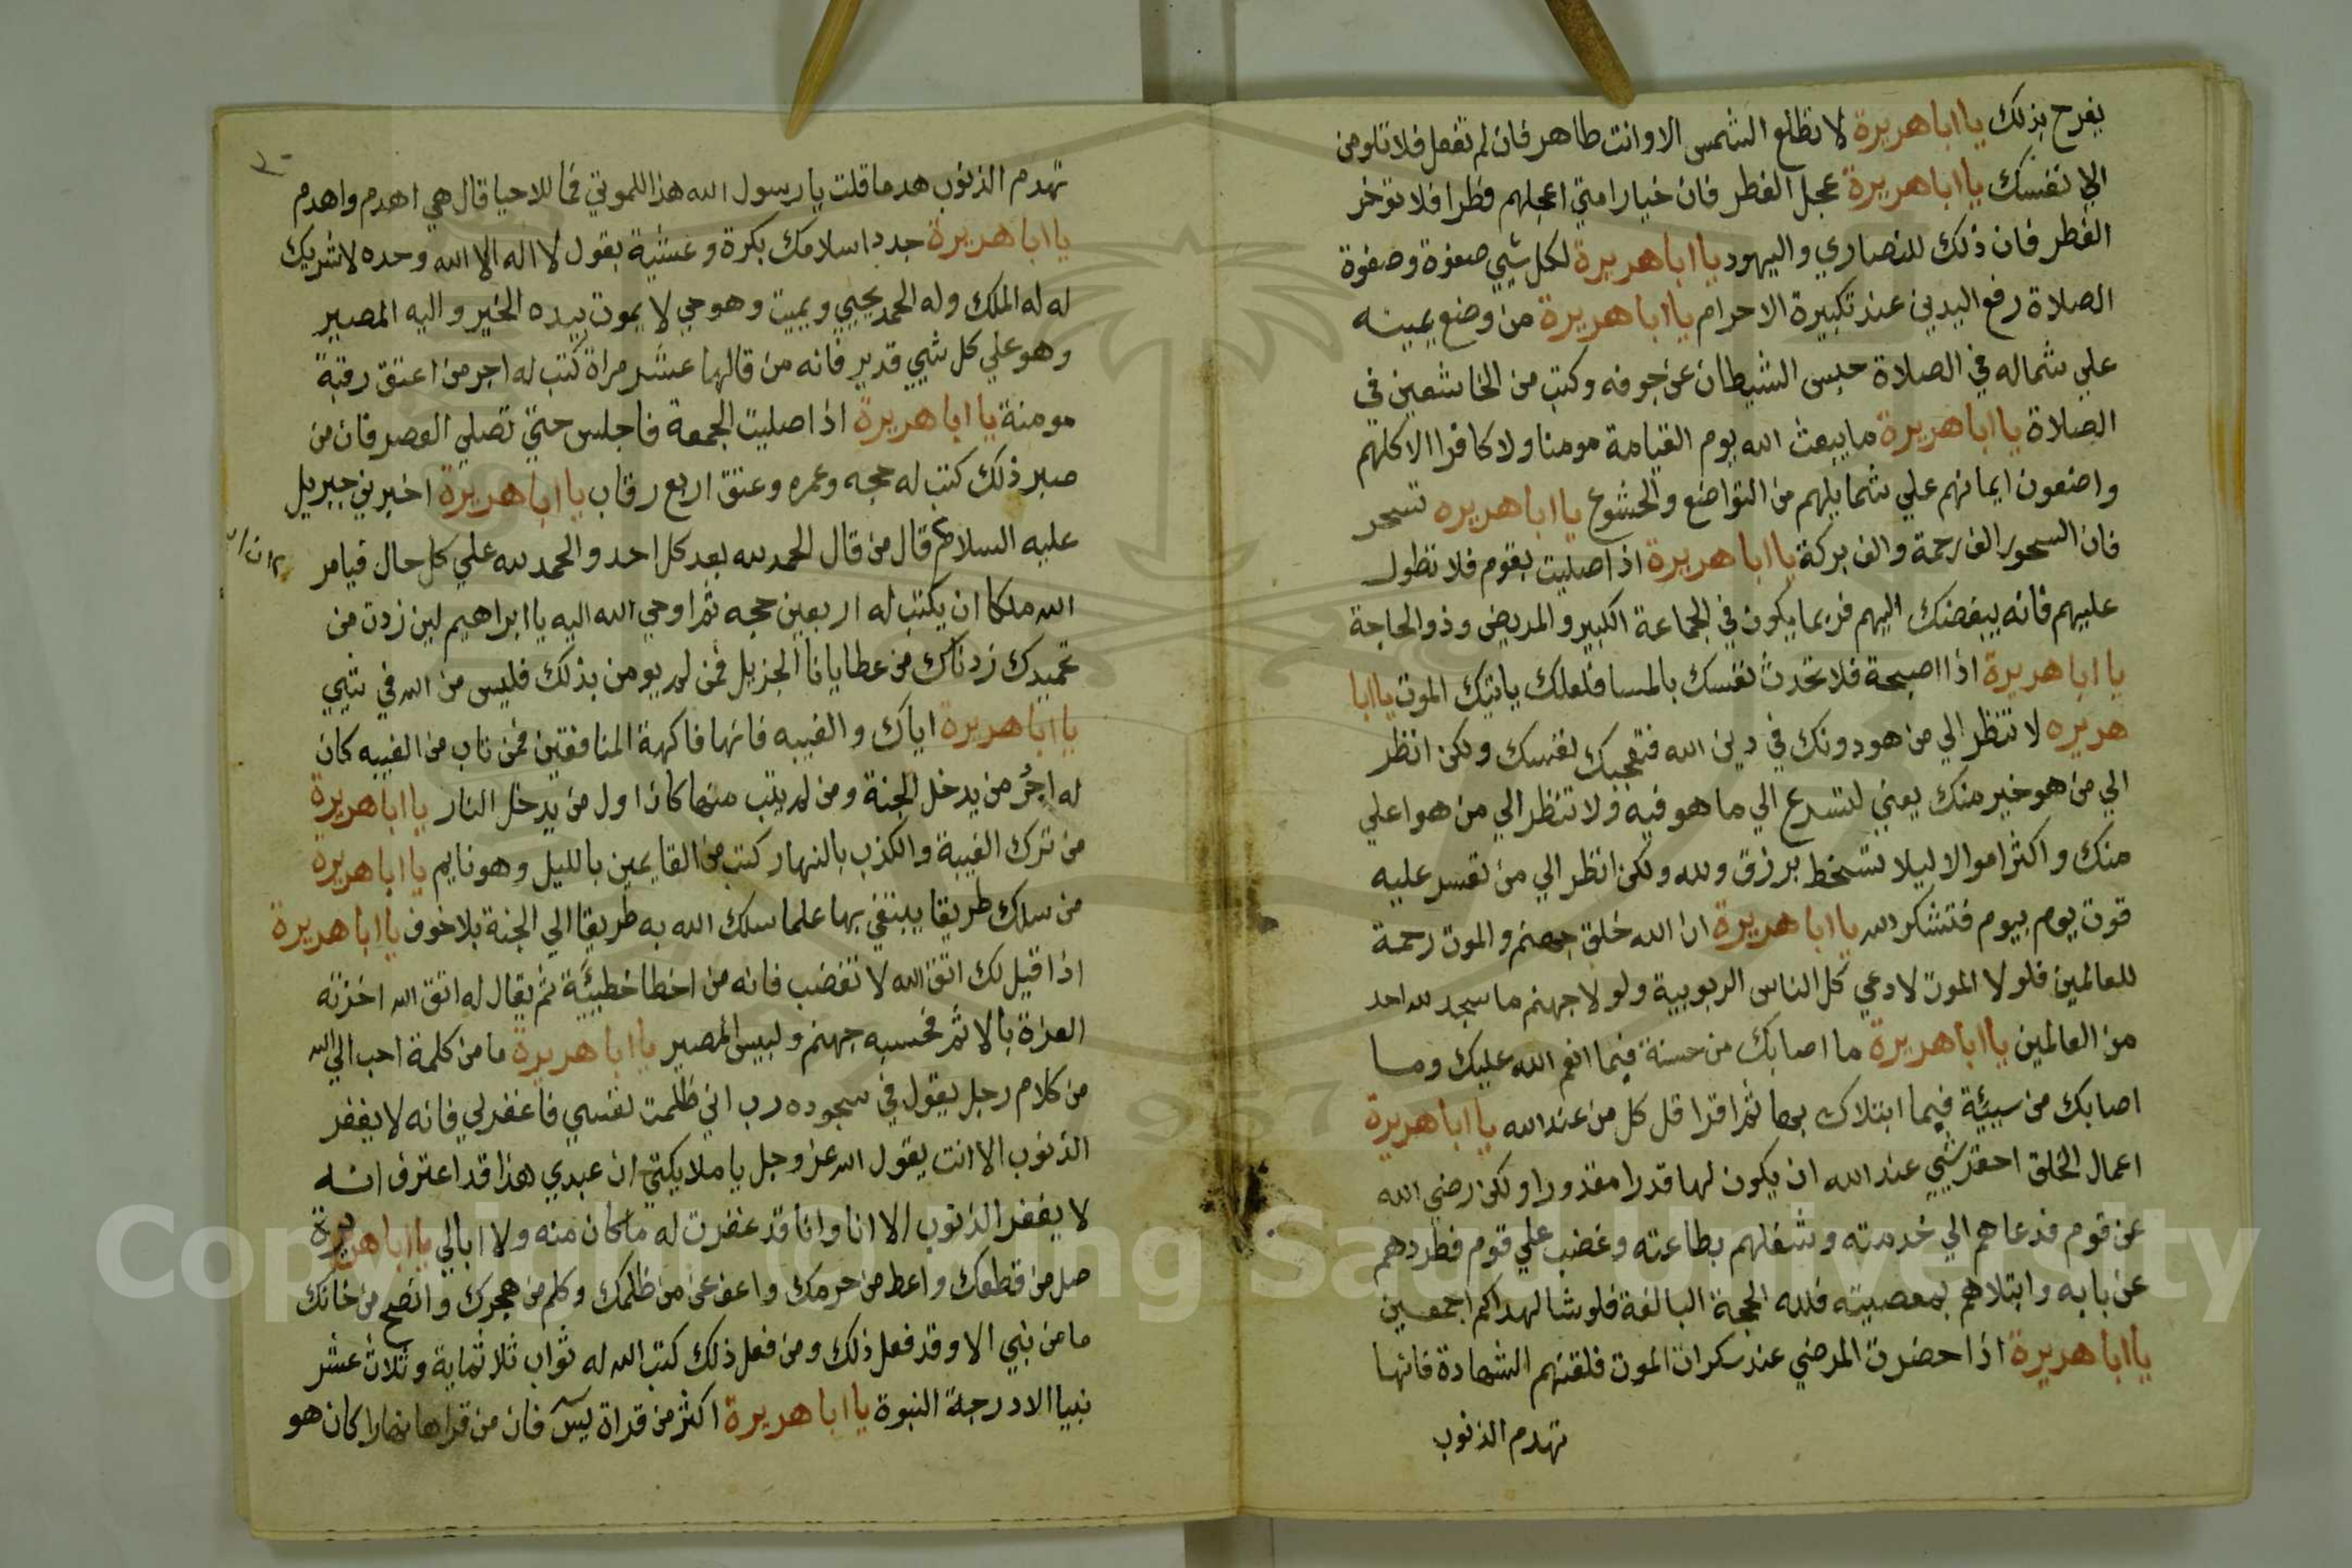 يفرح بذلك يا ابا هريرة لا تطلع الشمس الا وانت طاهر فان لم تفعل فلا تلومن
الا نفسك يا ابا هريرة عجل الفطر فان خيار امتي اعجلهم فطرا فلا توخر
الفطر فان ذلك للنصاري واليهود يا ابا هريرة لكل شيي صفوة وصفوة
الصلاة رفع اليدين عند تكبيرة الاحرام يا ابا هريرة من وضع يمينه
علي شماله في الصلاة حبس الشيطان عن جوفه وكتب من الخاشعين في
الصلاة يا ابا هريرة ما يبعث الله يوم القيامة مومنا ولا كافرا الا كلهم
واضعون ايمانهم علي شمايلهم من التواضع والخشوع يا ابا هريره تسحر
فان السحور الف رحمة والف بركة يا ابا هريرة اذا صليت بقوم فلا تطول
عليهم فانه يبغضك اليهم فربما يكون في الجماعة الكبير والمريض وذو الحاجة
يا ابا هريرة اذا اصبحة فلا تحدث نفسك بالمسا فلعلك ياتيك الموت يا ابا
هريره لا تنظر الي من هو دونك في دين الله فتعجبك نفسك ولكن انظر
الي من هو خير منك يعني لتسرع الي ما هو فيه ولا تنظر الي من هو اعلي
منك واكثر اموالا ليلا تسخط برزق ولله ولكن انظر الي من تعسر عليه
قوت يوم بيوم فتشكر الله يا ابا هريرة ان الله خلق جهنم والموت رحمة
للعالمين فلولا الموت لادعي كل الناس الربوبية ولولا جهنم ما سجد لله احد
من العالمين يا ابا هريرة ما اصابك من حسنة فيما انعم الله عليك وما
اصابك من سيية فيما ابتلاك بها ثم اقرا قل كل من عند الله يا ابا هريرة
اعمال الخلق احقر شيي عند الله ان يكون لها قدرا مقدورا ولكن رضي الله
عن قوم فدعاهم الي خدمته وشغلهم بطاعته وغضب علي قوم فطردهم
عن بابه وابتلاهم بمعصيته فلله الحجة البالغة فلو شا لهداكم اجمعين
يا ابا هريرة اذا حضرت المرضي عند سكرات الموت فلقنهم الشهادة فانها
تهدم الذنوب
تهدم الذنوب هدما قلت يا رسول الله هذا للموتي فما للاحيا قال هي اهدم واهدم
يا ابا هريرة جدد اسلامك بكرة وعشية بقول لا اله الا الله وحده لا شريك
له له الملك وله الحمد يحيي ويميت وهو حي لا يموت بيده الخير واليه المصير
وهو علي كل شيي قدير فانه من قالها عشر مراة كتب له اجر من اعتق رقبة
مومنة يا ابا هريرة اذا صليت الجمعة فاجلس حتي تصلي العصر فان من
صبر ذلك كتب له حجه وعمره وعتق اربع رقاب يا ابا هريرة اخبرني جبريل
عليه السلام قال من قال الحمد لله بعد كل احد والحمد لله علي كل حال فيامر
الله ملكا ان يكتب له اربعين حجه ثم اوحي الله اليه يا ابراهيم لين زدت من
تحميدك زدناك من عطايانا الجزيل فمن لم يومن بذلك فليس من الله في شيي
يا ابا هريرة اياك والغيبه فانها فاكهة المنافقين فمن تاب من الغيبه كان
له اجر من يدخل الجنة ومن لم يتب منها كان اول من يدخل النار يا ابا هريرة
من ترك الغيبة والكذب بالنهار كتب من القايمين بالليل وهو نايم يا ابا هريرة
من سلك طريقا يبتغي بها علما سلك الله به طريقا الي الجنة بلا خوف يا ابا هريرة
اذا قيل لك اتق الله لا تغضب فانه من اخطا خطيية ثم يقال له اتق الله اخذته
العزة بالاثم فحسبه جهنم ولبيس المصير يا ابا هريرة ما من كلمة احب الي الله
من كلام رجل يقول في سجوده رب اني ظلمت نفسي فاغفر لي فانه لا يغفر
الذنوب الا انت يقول الله عز وجل يا ملايكتي ان عبدي هذا قد اعترف انه
لا يغفر الذنوب الا انا وانا قد غفرت له ما كان منه ولا ابالي يا ابا هريرة
صل من قطعك واعط من حرمك واعف عن من ظلمك وكلم من هجرك وانصح من خانك
ما من نبي الا وقد فعل ذلك ومن فعل ذلك كتب الله له ثواب ثلاثماية وثلاث عشر
نبيا الا درجة النبوة يا ابا هريرة اكثر من قراة يس فان من قراها نهارا كان هو